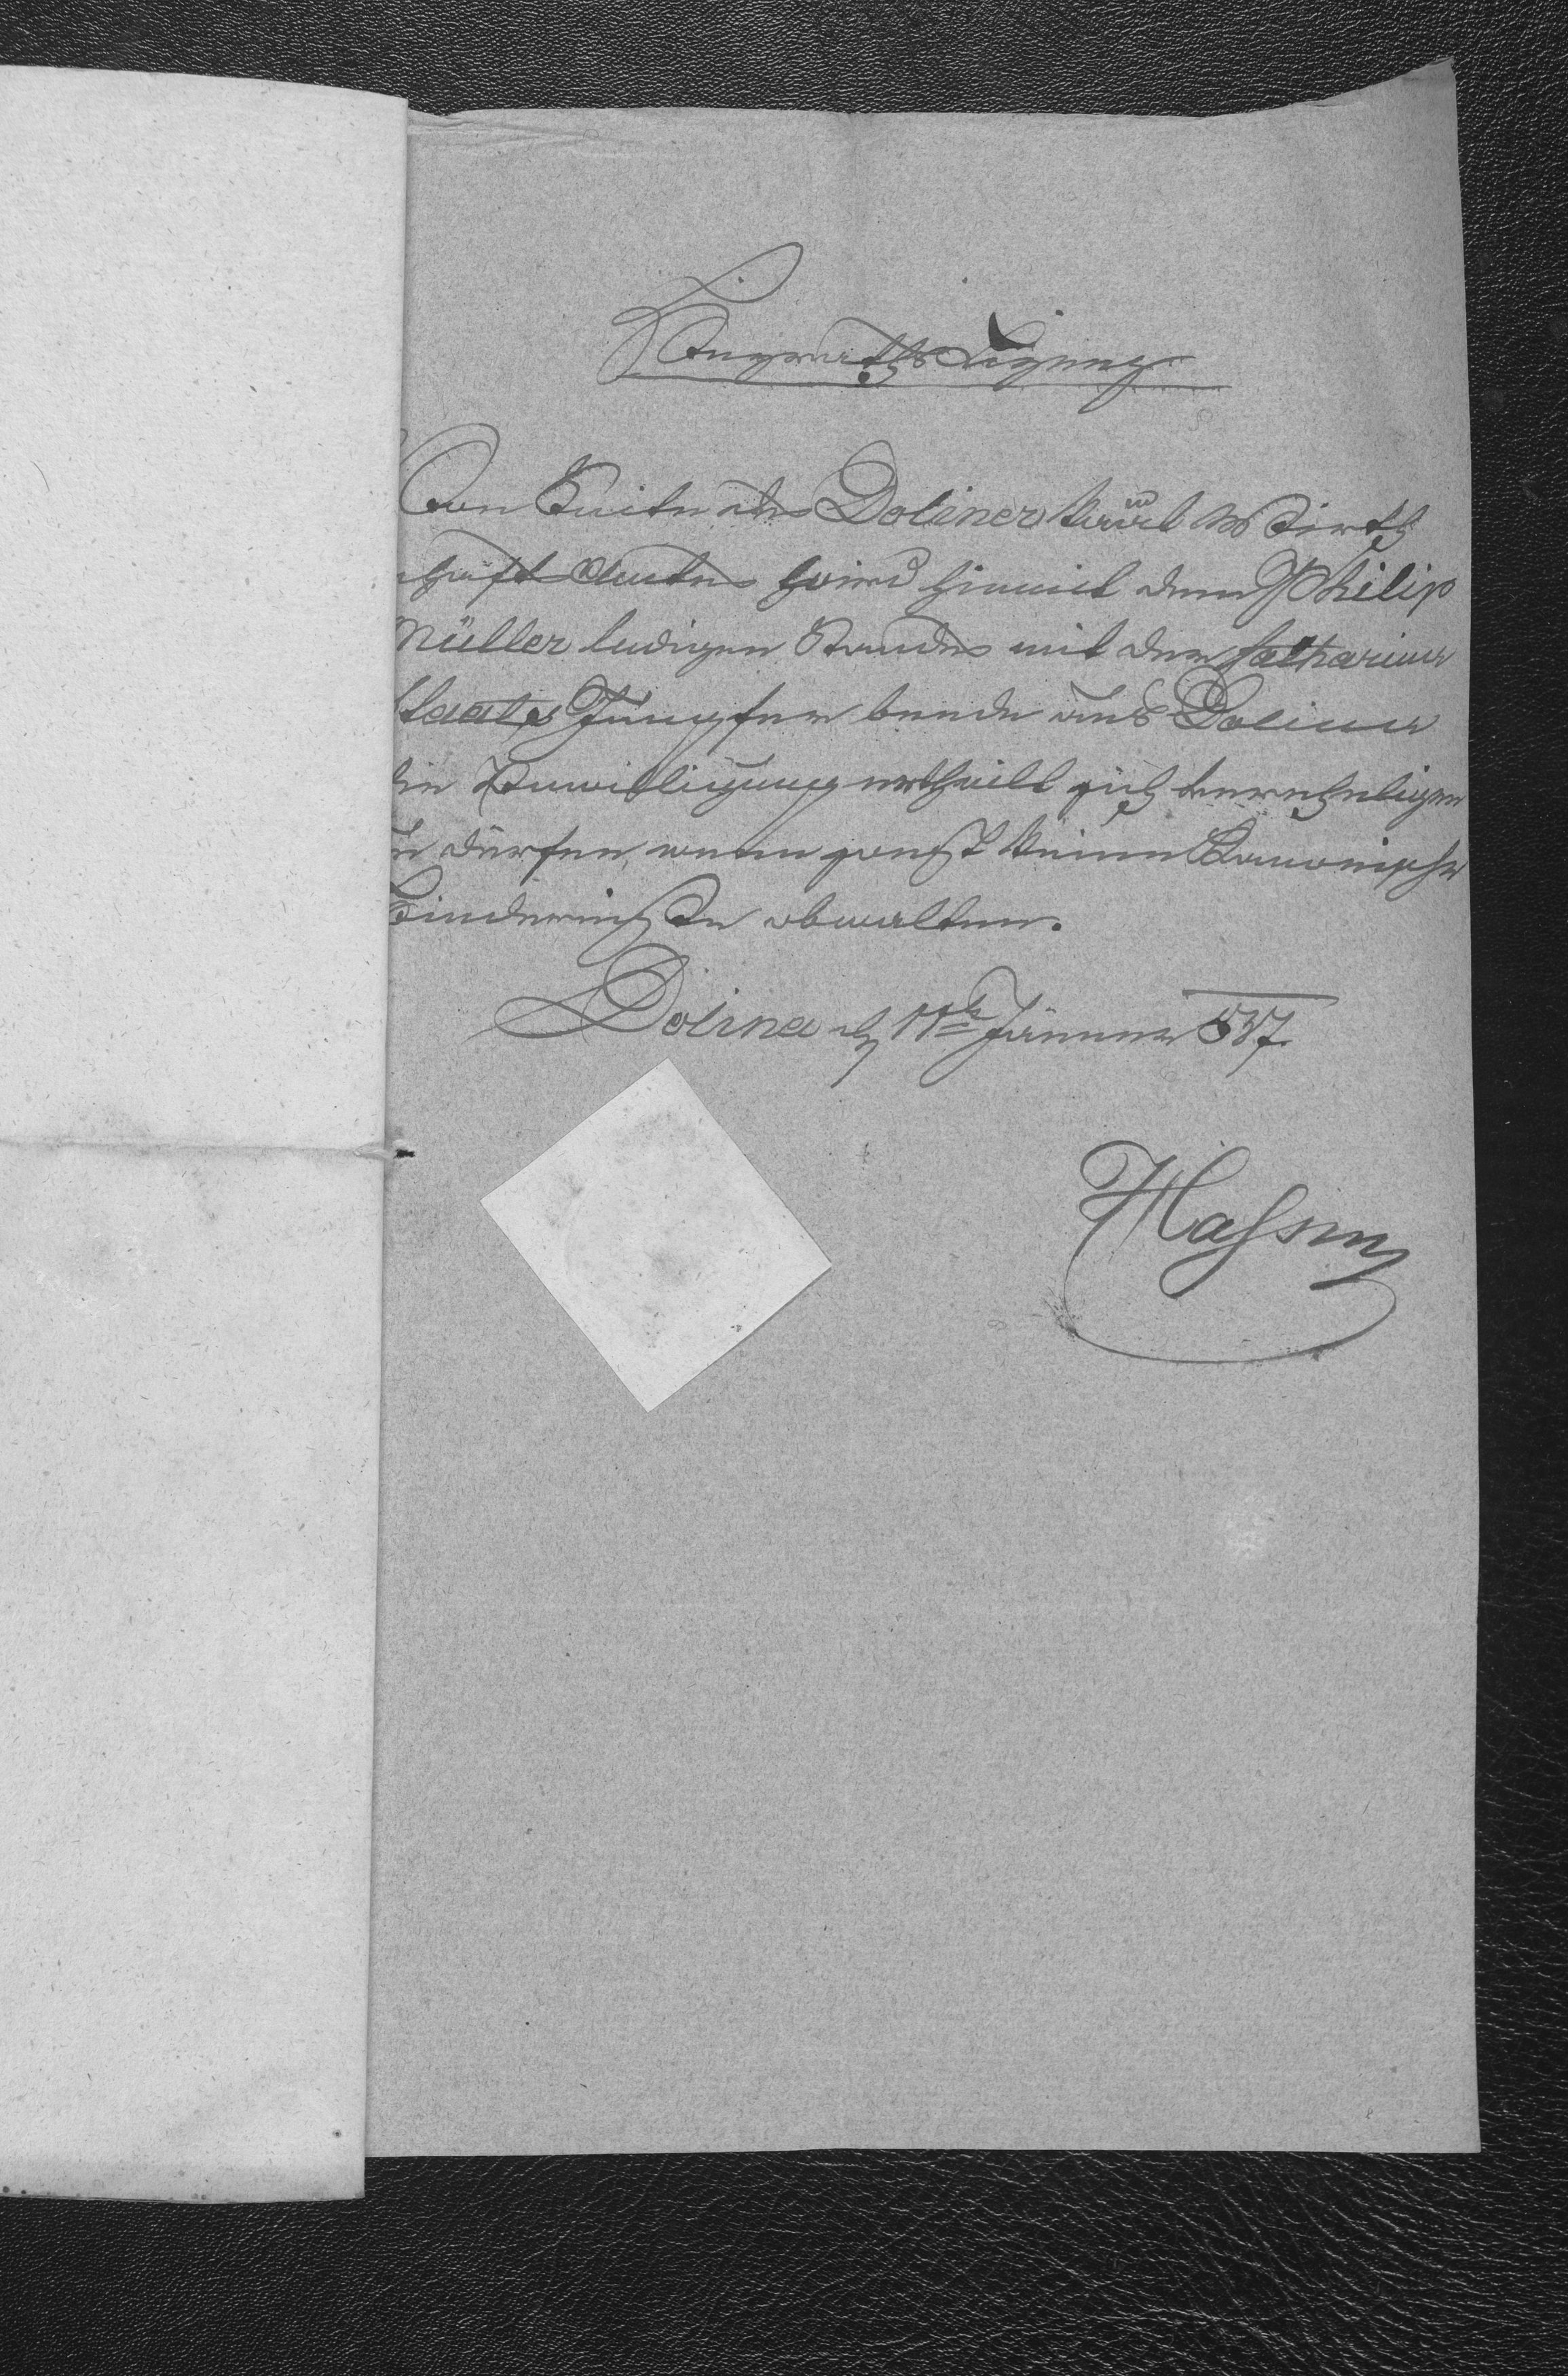 Heyraths Lizenz
Von Seite des Doliner kaal Wirth
schaft Amtes wird hiemit dem Philip
Müller ledigen Standes mit der Catharina
Jungfer beede aus Dolina
die Bewilligung ertheilt sich verehelige
zu därfen, wenn sonst keine Kanonische
Hinderniße obwalten.
Dolina d 11t Jänner 837.